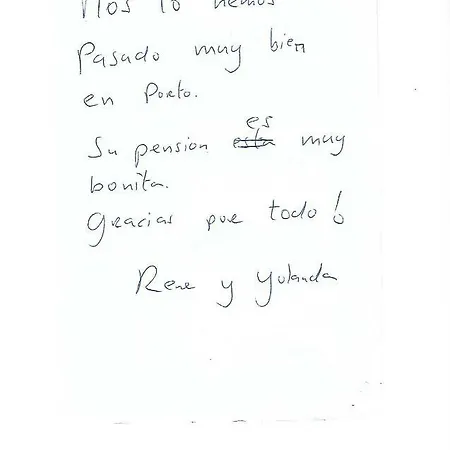 Nos lo hemos
Pasado muy bien
en Porto.
es
Su pension esta muy
bonita.
gracias por todo!
Rene y Yolanda